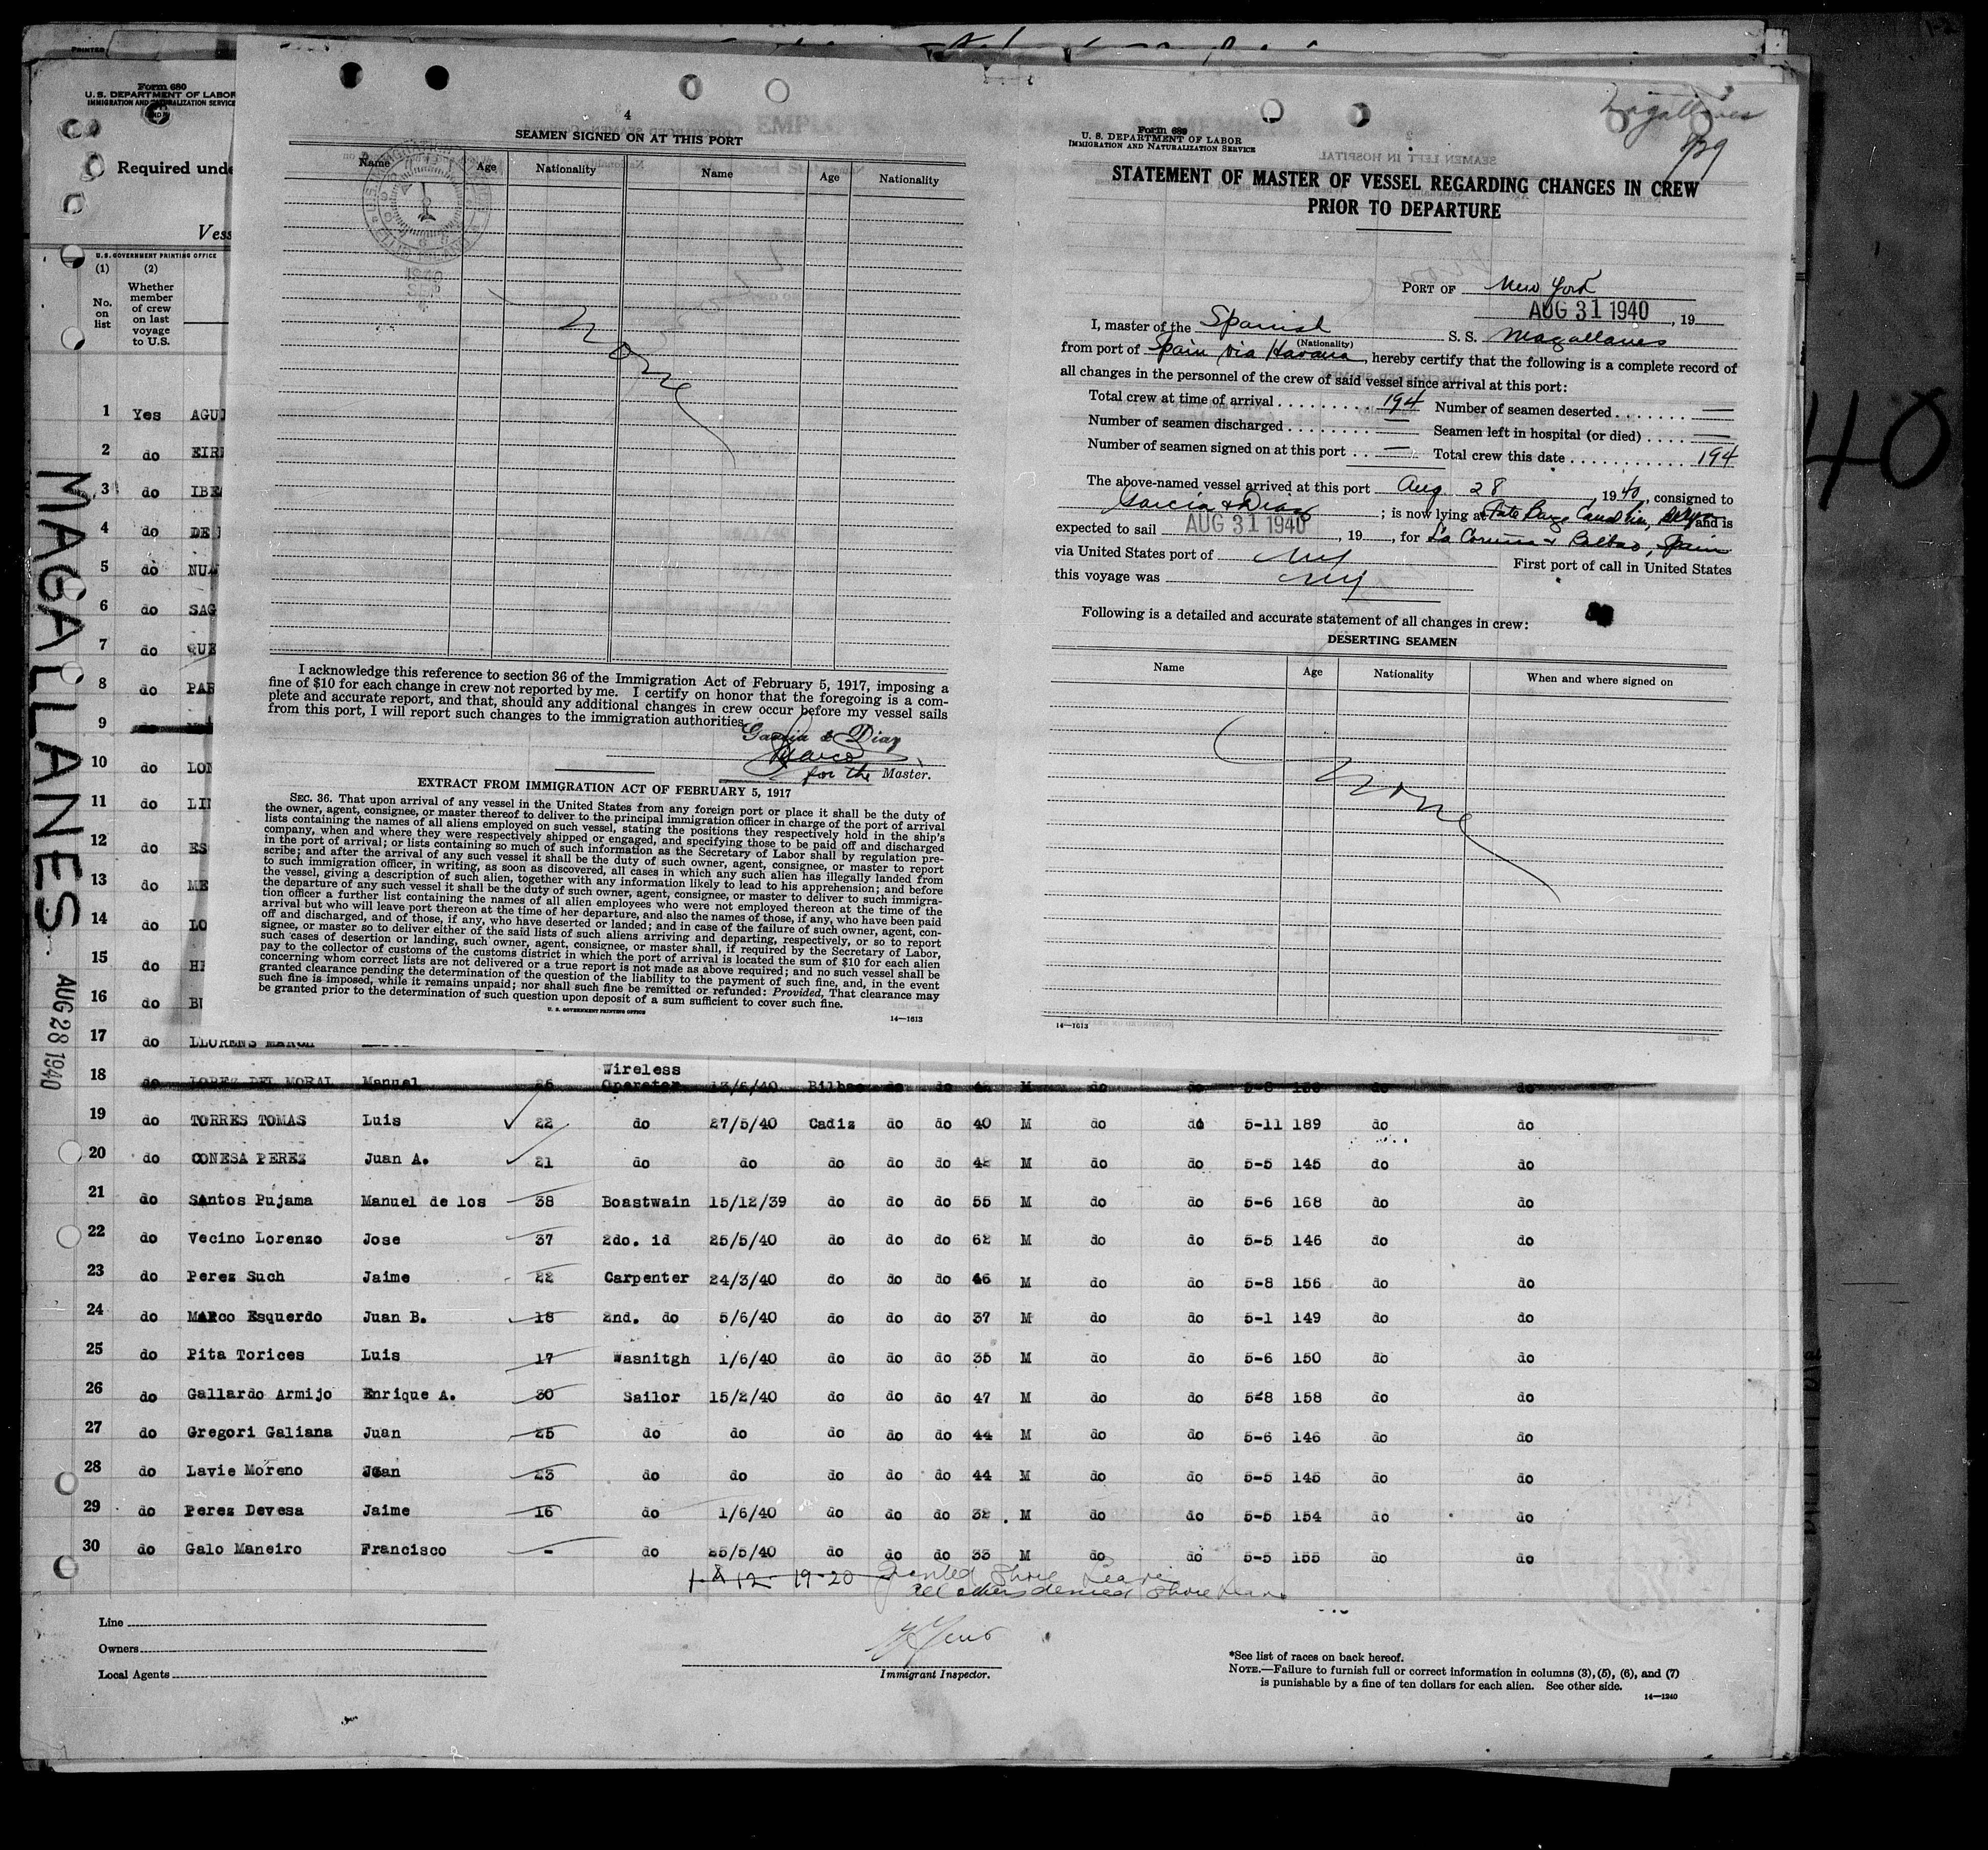 PRINTED
Form 680
U. S. DEPARTMENT OF LABOR
IMMIGRATION AND NATURALIZATION SERVICE
Required unde
Vess
U. S. GOVERNMENT PRINTING OFFICE
(1) (2)
No. on list
Whether member of crew on last voyage to U.S.
1 Yes AGUI
2 do EIRI
3 do IBEA
4 do DE
5 do NU
6 do SAG
7 do QUE
8 do PAB
9 do
10 do LON
11 do LI
12 do ES
13 do ME
14 do LO
15 do
16 do
MAGALLANES
AUG 28 1940
4
SEAMEN SIGNED ON AT THIS PORT
Name Age Nationality Name Age Nationality
None
I acknowledge this reference to section 36 of the Immigration Act of February 5, 1917, imposing a
fine of $10 for each change in crew not reported by me. I certify on honor that the foregoing is a com-
plete and accurate report, and that, should any additional changes in crew occur before my vessel sails
from this port, I will report such changes to the immigration authorities.
Garcia & Diaz
for the Master.
EXTRACT FROM IMMIGRATION ACT OF FEBRUARY 5, 1917
SEC. 36. That upon arrival of any vessel in the United States from any foreign port or place it shall be the duty of
the owner, agent, consignee, or master thereof to deliver to the principal immigration officer in charge of the port of arrival
lists containing the names of all aliens employed on such vessel, stating the positions they respectively hold in the ship's
company, when and where they were respectively shipped or engaged, and specifying those to be paid off and discharged
in the port of arrival; or lists containing so much of such information as the Secretary of Labor shall by regulation pre-
scribe; and after the arrival of any such vessel it shall be the duty of such owner, agent, consignee, or master to report
to such immigration officer, in writing, as soon as discovered, all cases in which any such alien has illegally landed from
the vessel, giving a description of such alien, together with any information likely to lead to his apprehension; and before
the departure of any such vessel it shall be the duty of such owner, agent, consignee, or master to deliver to such immigra-
tion officer a further list containing the names of all alien employees who were not employed thereon at the time of the
arrival but who will leave port thereon at the time of her departure, and also the names of those, if any, who have been paid
off and discharged, and of those, if any, who have deserted or landed; and in case of the failure of such owner, agent, con-
signee, or master so to deliver either of the said lists of such aliens arriving and departing, respectively, or so to report
such cases of desertion or landing, such owner, agent, consignee, or master shall, if required by the Secretary of Labor,
pay to the collector of customs of the customs district in which the port of arrival is located the sum of $10 for each alien
concerning whom correct lists are not delivered or a true report is not made as above required; and no such vessel shall be
granted clearance pending the determination of the question of the liability to the payment of such fine, and, in the event
such fine is imposed, while it remains unpaid; nor shall such fine be remitted or refunded: Provided, That clearance may
be granted prior to the determination of such question upon deposit of a sum sufficient to cover such fine.
U. S. GOVERNMENT PRINTING OFFICE
14—1613
Magallanes
Form 689
U. S. DEPARTMENT OF LABOR
IMMIGRATION AND NATURALIZATION SERVICE
STATEMENT OF MASTER OF VESSEL REGARDING CHANGES IN CREW
PRIOR TO DEPARTURE
PORT OF New York
AUG 31 1940, 19
I, master of the Spanish S. S. Magallanes
(Nationality)
from port of Spain via Havana, hereby certify that the following is a complete record of
all changes in the personnel of the crew of said vessel since arrival at this port:
Total crew at time of arrival 194 Number of seamen deserted —
Number of seamen discharged — Seamen left in hospital (or died) —
Number of seamen signed on at this port — Total crew this date 194
The above-named vessel arrived at this port Aug 28, 1940, consigned to
Garcia & Diaz; is now lying at and is
expected to sail AUG 31 1940, 19, for La Coruña & Bilbao, Spain
via United States port of NY First port of call in United States
this voyage was NY
Following is a detailed and accurate statement of all changes in crew:
DESERTING SEAMEN
Name Age Nationality When and where signed on
None
14—1613
40
17 do LLORENS
18 do LOPEZ DEL MORAL Manuel Wireless Operator 13/6/40 Bilbao do do M do do 5-8 do do
19 do TORRES TOMAS Luis 22 do 27/5/40 Cadiz do do 40 M do do 5-11 189 do do
20 do CONESA PEREZ Juan A. 21 do do do do do 42 M do do 5-5 145 do do
21 do SAntos Pujama Manuel de los 38 Boastwain 15/12/39 do do do 55 M do do 5-6 168 do do
22 do Vecino Lorenzo Jose 37 2do. id 25/5/40 do do do 62 M do do 5-5 146 do do
23 do Perez Such Jaime 22 Carpenter 24/3/40 do do do 46 M do do 5-8 156 do do
24 do MARco Esquerdo Juan B. 18 2nd. do 5/6/40 do do do 37 M do do 5-1 149 do do
25 do Pita Torices Luis 17 Wasnitgh 1/6/40 do do do 35 M do do 5-6 150 do do
26 do Gallardo Armijo Enrique A. 30 Sailor 15/2/40 do do do 47 M do do 5-8 158 do do
27 do Gregori Galiana Juan 25 do do do do do 44 M do do 5-6 146 do do
28 do Lavie Moreno Juan 23 do do do do do 44 M do do 5-5 145 do do
29 do Perez Devesa Jaime 16 do 1/6/40 do do do 32 . M do do 5-5 154 do do
30 do Galo Maneiro Francisco - do 25/5/40 do do do 33 M do do 5-5 155 do do
12 19-20 Granted Shore Leave
All others denied Shore Leave
Line
Owners
Local Agents
Immigrant Inspector.
*See list of races on back hereof.
NOTE.—Failure to furnish full or correct information in columns (3), (5), (6), and (7)
is punishable by a fine of ten dollars for each alien. See other side.
14—1240